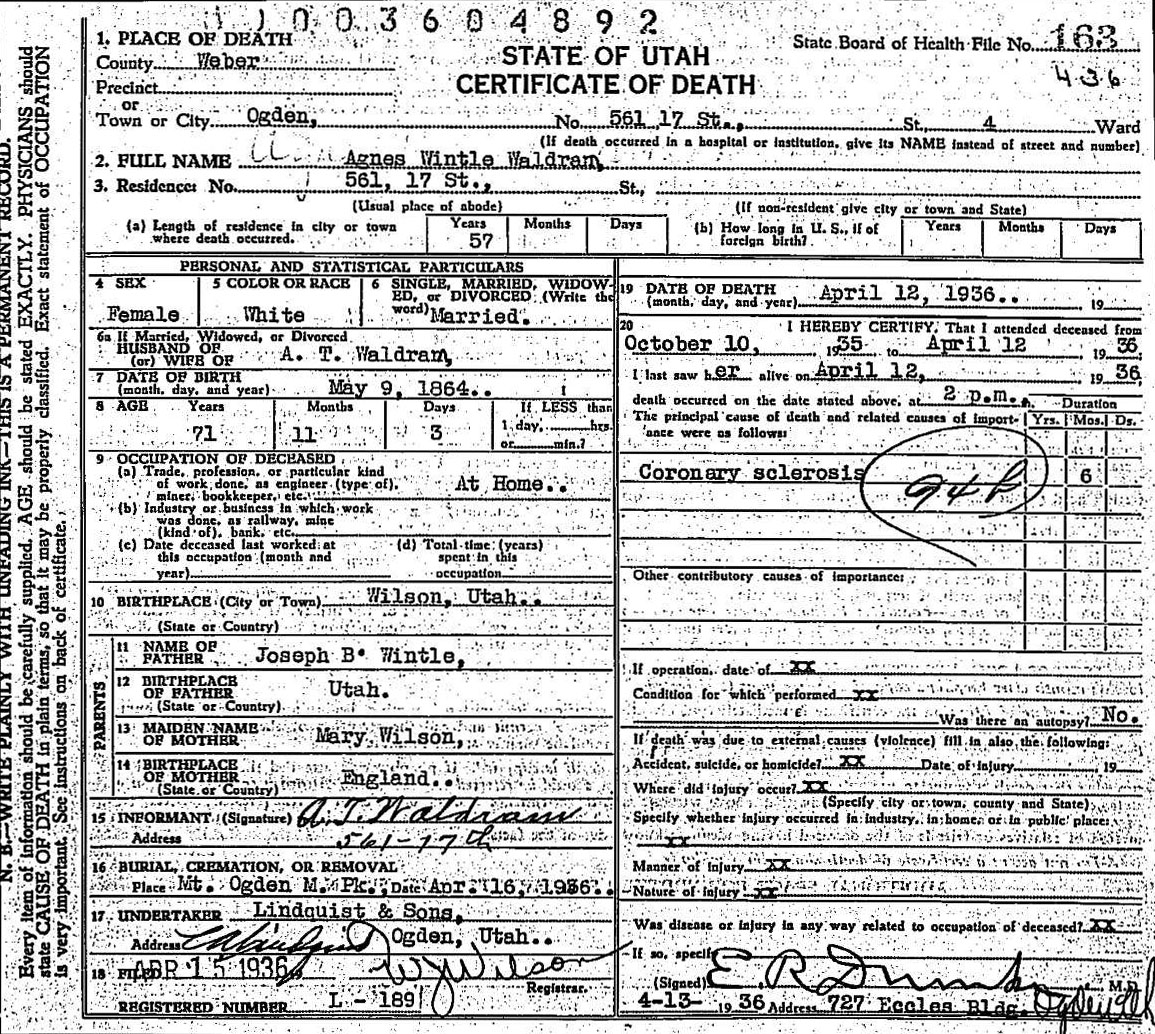 0 1 0 0 3 6 0 4 8 9 2
STATE OF UTAH
CERTIFICATE OF DEATH
State Board of Health File No. 163
436
1. PLACE OF DEATH
County Weber
Precinct
or
Town or City Ogden, No. 561 17 St., St., 4 Ward
(If death occurred in a hospital or institution, give its NAME instead of street and number)
2. FULL NAME Agnes Wintle Waldram,
3. Residence: No. 561, 17 St., St.,
(Usual place of abode) (If non-resident give city or town and State)
(a) Length of residence in city or town where death occurred. Years 57 Months Days (b) How long in U. S., if of foreign birth? Years Months Days
PERSONAL AND STATISTICAL PARTICULARS
4 SEX Female
5 COLOR OR RACE White
6 SINGLE, MARRIED, WIDOW-
ED, or DIVORCED (Write the
word) Married.
6a If Married, Widowed, or Divorced
HUSBAND OF
(or) WIFE OF A. T. Waldram,
7 DATE OF BIRTH
(month, day, and year) May 9, 1864..
8 AGE Years Months Days If LESS than
71 11 3 1 day, hrs.
or min.?
9 OCCUPATION OF DECEASED
(a) Trade, profession, or particular kind
of work done, as engineer (type of),
miner, bookkeeper, etc. At Home..
(b) Industry or business in which work
was done, as railway, mine
(kind of), bank, etc.
(c) Date deceased last worked at
this occupation (month and
year)
(d) Total time (years)
spent in this
occupation
10 BIRTHPLACE (City or Town) Wilson, Utah..
(State or Country)
PARENTS
11 NAME OF
FATHER Joseph B. Wintle,
12 BIRTHPLACE
OF FATHER Utah.
(State or Country)
13 MAIDEN NAME
OF MOTHER Mary Wilson,
14 BIRTHPLACE
OF MOTHER England..
(State or Country)
15 INFORMANT (Signature) A.T. Waldram
Address 561-17th
16 BURIAL, CREMATION, OR REMOVAL
Place Mt. Ogden M. Pk. Date Apr. 16, 1936..
17 UNDERTAKER Lindquist & Sons,
Address Ogden, Utah..
18 FILED APR 15 1936 W J Wilson
Registrar.
REGISTERED NUMBER L - 189
19 DATE OF DEATH
(month, day, and year) April 12, 1936.. 19
20 I HEREBY CERTIFY, That I attended deceased from
October 10, 1935 to April 12 1936
I last saw her alive on April 12, 1936,
death occurred on the date stated above, at 2 p.m., Duration
The principal cause of death and related causes of import-
ance were as follows: Yrs. Mos. Ds.
Coronary sclerosis 94b 6
Other contributory causes of importance:
If operation, date of XX
Condition for which performed XX
Was there an autopsy? No.
If death was due to external causes (violence) fill in also the following:
Accident, suicide, or homicide? XX Date of injury 19
Where did injury occur? XX
(Specify city or town, county and State)
Specify whether injury occurred in industry, in home, or in public place:
XX
Manner of injury XX
Nature of injury XX
Was disease or injury in any way related to occupation of deceased? XX
If so, specify
(Signed) E. R. M.D.
4-13- 1936 Address 727 Eccles Bldg. Ogden Utah
N. B.—WRITE PLAINLY WITH UNFADING INK—THIS IS A PERMANENT RECORD.
Every item of information should be carefully supplied. AGE should be stated EXACTLY. PHYSICIANS should
state CAUSE OF DEATH in plain terms, so that it may be properly classified. Exact statement of OCCUPATION
is very important. See instructions on back of certificate.